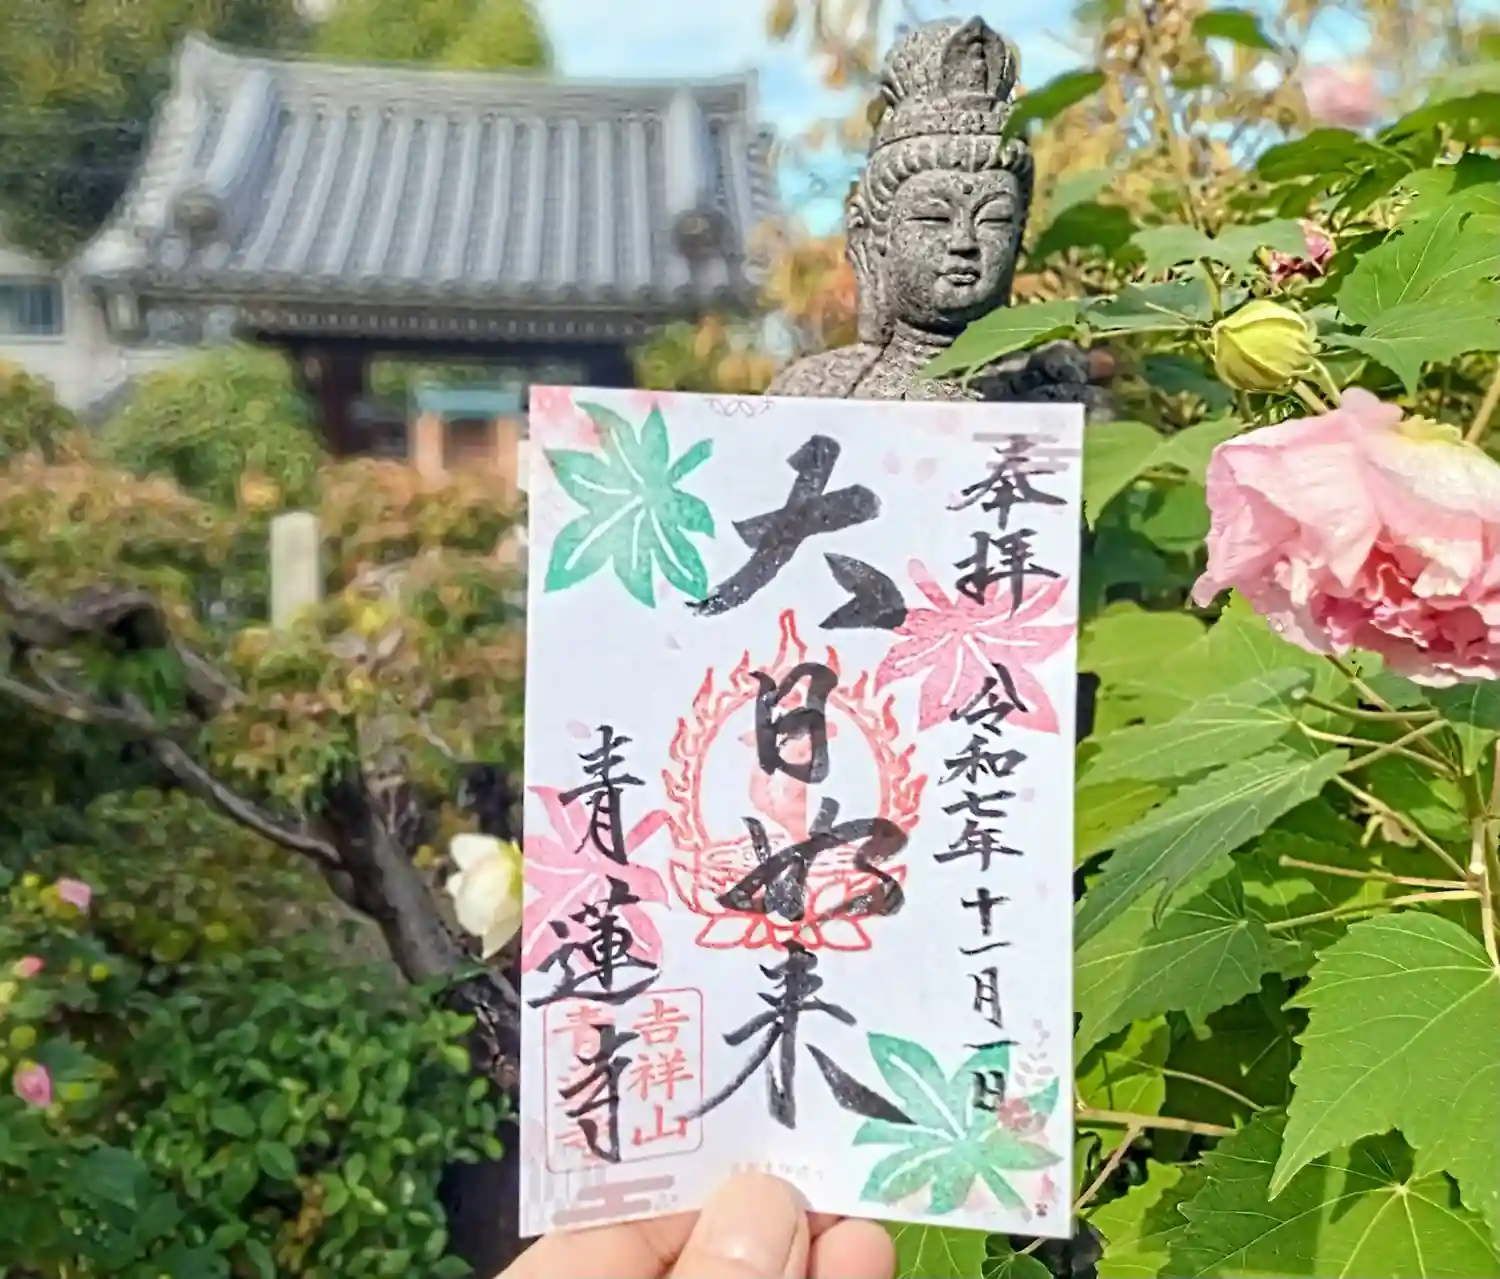 奉拝
令和七年十一月一日
大日如来
青蓮寺
吉祥山
青蓮寺